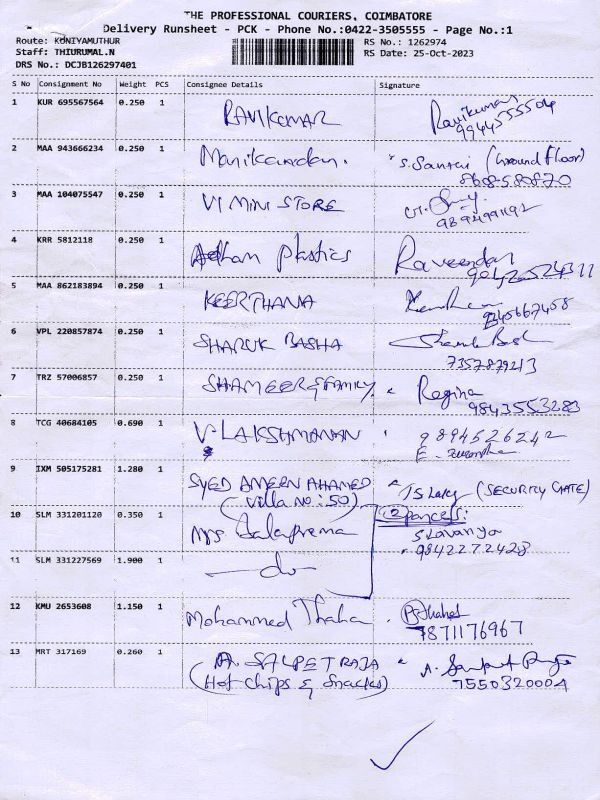 THE PROFESSIONAL COURIERS, COIMBATORE
Delivery Runsheet - PCK - Phone No.:0422-3505555 - Page No.:1
Route: KUNIYAMUTHUR
RS No.: 1262974
Staff: THIRUMAL.N
RS Date: 25-Oct-2023
DRS No.: DCJB126297401
S No Consignment No Weight PCS Consignee Details Signature
1 KUR 695567564 0.250 1 RAVIKUMAR Ravikumar
9944555504
2 MAA 943666234 0.250 1 Manikandan. S. Santhi (Ground Floor)
8608580870
3 MAA 104075547 0.250 1 VI MINI STORE
9894991192
4 KRR 5812118 0.250 1 Adham Plastics Raveendar
9042524311
5 MAA 862183894 0.250 1 KEERTHANA
9245667458
6 VPL 220857874 0.250 1 SHARUK BASHA
7357879213
7 TRZ 57006857 0.250 1 SHAMEER & FAMILY Regina
9843553283
8 TCG 40684105 0.690 1 V LAKSHMANAN 9894526242
9 IXM 505175281 1.280 1 SYED AMEEN AHAMED (SECURITY GATE)
(Villa No: 50)
10 SLM 331201120 0.350 1 Mrs. Balaprema ② parcels:
S Lavanya
9842272428
11 SLM 331227569 1.900 1 —do—
12 KMU 2653608 1.150 1 Mohammed Thaha
7871176967
13 MRT 317169 0.260 1 A. SALPET RAJA
(Hot Chips & Snacks) 7550320004